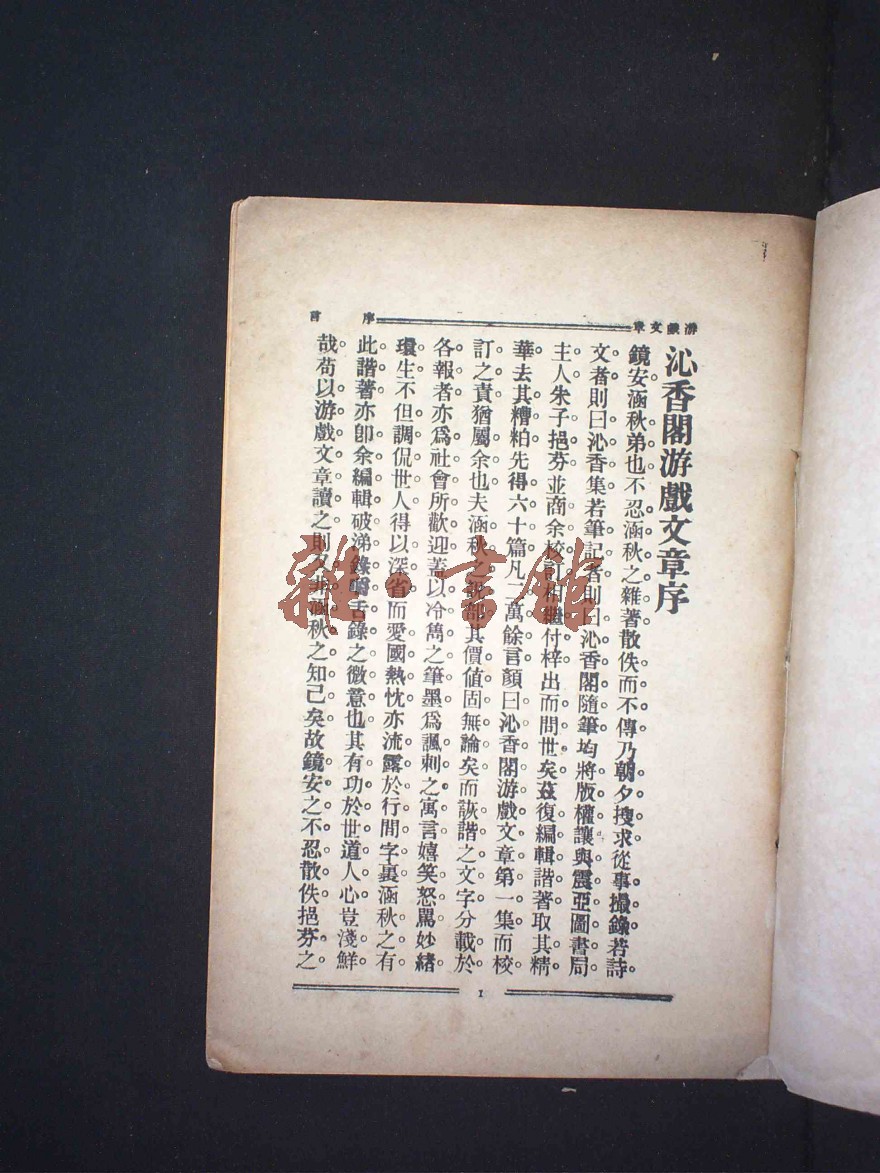 游戲文章
序 言
沁香閣游戲文章序
鏡安涵秋弟也不忍涵秋之雜著散佚而不傳乃朝夕搜求從事撮錄若詩
文者則曰沁香集若筆記者則曰沁香閣隨筆均將版權讓與震亞圖書局
主人朱子挹芬並商余校訂相繼付梓出而問世矣茲復編輯諧著取其精
華去其糟粕先得六十篇凡二萬餘言顏曰沁香閣游戲文章第一集而校
訂之責猶屬余也夫涵秋之說部其價値固無論矣而詼諧之文字分載於
各報者亦爲社會所歡迎蓋以冷雋之筆墨爲諷刺之寓言嬉笑怒罵妙緖
瓊生不但調侃世人得以深省而愛國熱忱亦流露於行間字裏涵秋之有
此諧著亦卽余編輯破涕錄嚼舌錄之微意也其有功於世道人心豈淺鮮
哉苟以游戲文章讀之則又非涵秋之知己矣故鏡安之不忍散佚挹芬之
1
雜·書館